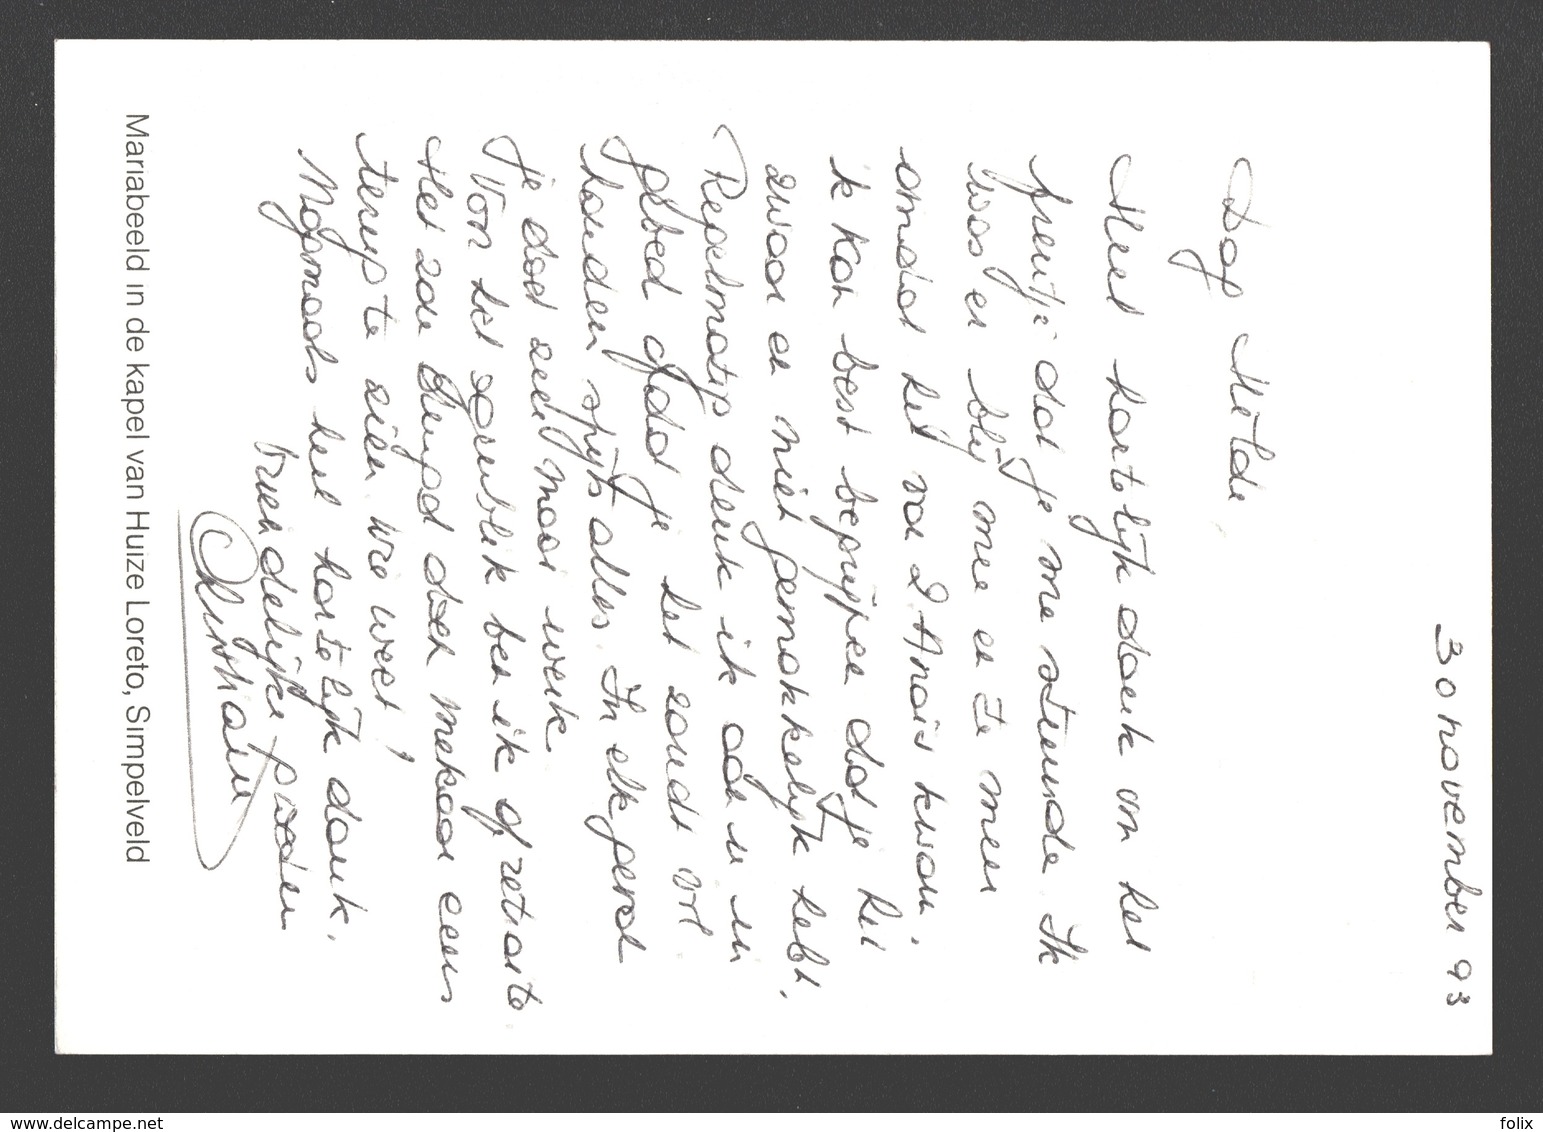 30 november 93
Dag Hilde,
Heel hartelijk dank om het
prentje dat je me stuurde. Ik
was er blij mee en te meer
omdat het van 2 Anais kwam.
ik kan best begrijpen dat je het
zwaar en niet gemakkelijk hebt.
Regelmatig denk ik aan u in
gebed opdat je het zoudt vol
houden spijts alles. In elk geval
je doet zeer mooi werk.
Von het ogenblik ben ik op retraite
Het zou deugd doen mekaar eens
terug te zien. Wie weet!
Nogmaals heel hartelijk dank.
Vriendelijke groeten
Mariabeeld in de kapel van Huize Loreto, Simpelveld
www.delcampe.net
folix